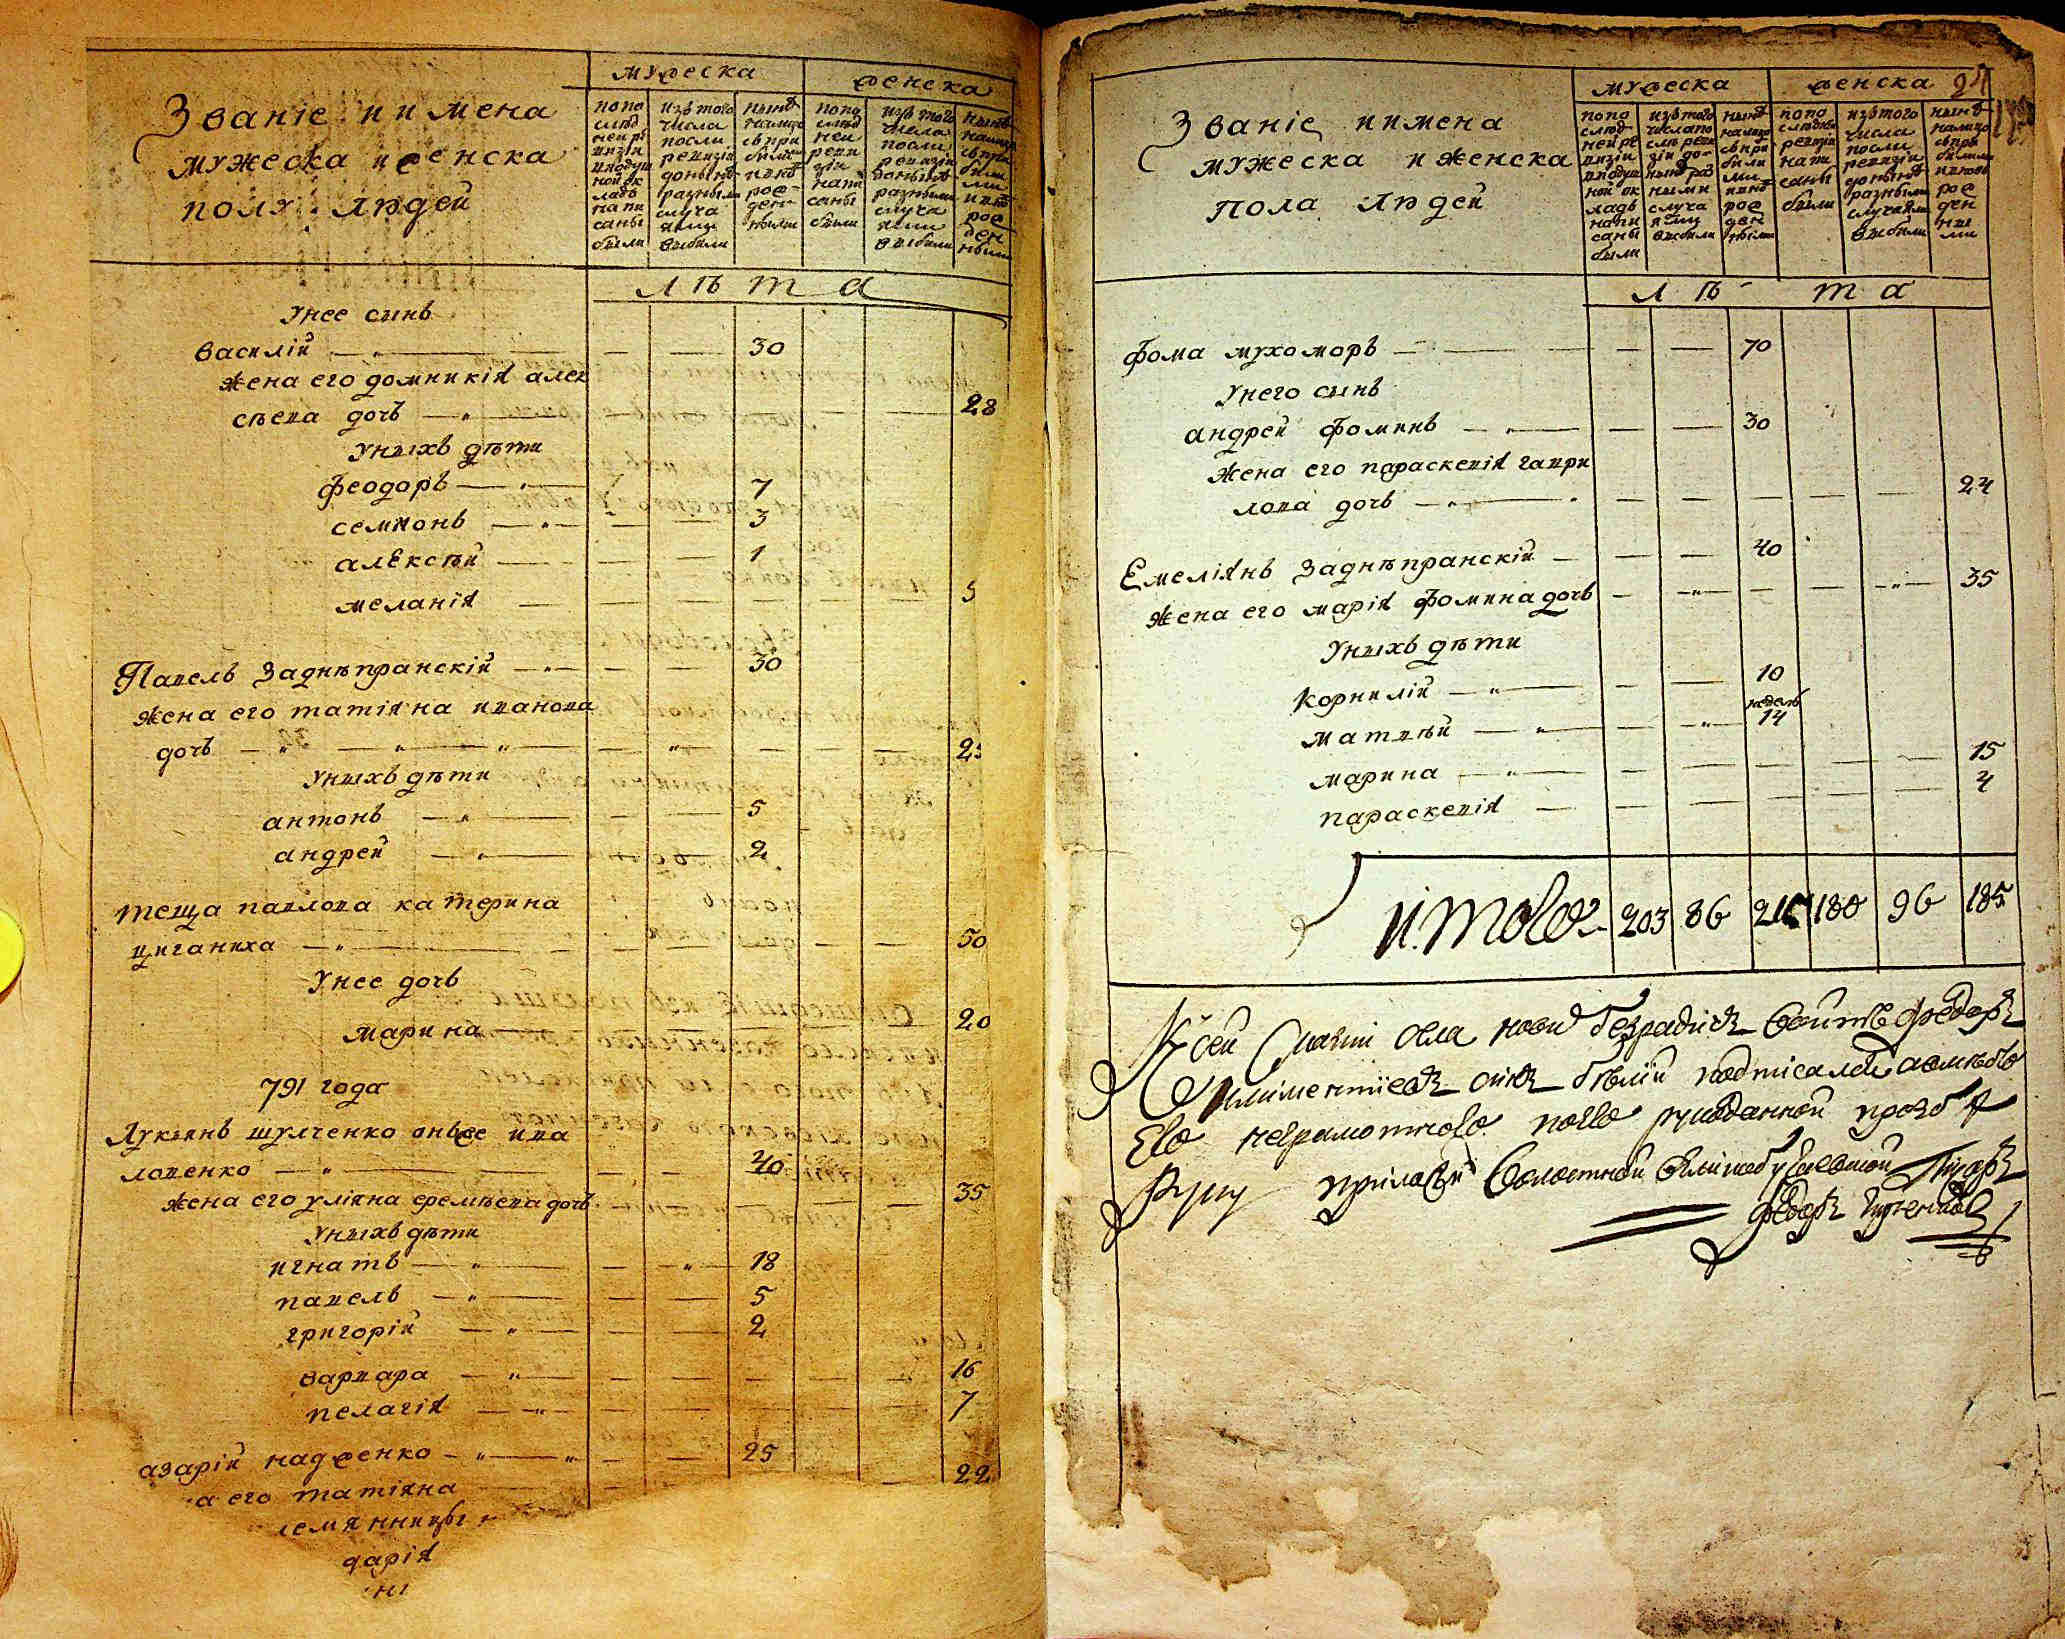 Званіе иимена
мужеска иженска
полу людей
мужеска
женска
попо
слѣд
ней ре
визіи
иподуш
ной ок
ладъ
напи
саны
были
изътого
числа
посли
ревизіи
донынѣ
разными
случа
ями
выбили
нынѣ
налицо
съпри
былыми
иновъ
рож-
ден
ными
попо
слѣд
ней
реви
зіи
напи
саны
были
изътого
числа
посли
ревизіи
донынѣ
разными
случа
ями
выбили
нынѣ
налицо
съпри
былы
ми
иновъ
рож
ден
ными
лѣта
Унее сынъ
василій 30
жена его домникія алек
сѣева дочъ 28
Унихъ дѣти
феодоръ 7
семионъ 3
алексѣй 1
меланія 5
Павелъ Заднѣпранскій 30
жена его татіяна иванова
дочъ 25
Унихъ дѣти
антонъ 5
андрей 2
теща павлова катерина
циганиха 50
Унее дочъ
марина 20
791 года
Лукіянъ шулченко онъже ива
ловенко 40
жена его уліяна еремѣева дочъ 35
Унихъ дѣти
игнатъ 18
павелъ 5
григорій 2
варвара 16
пелагія 7
азарій надженко 25
а его татіяна 22
лемянницы
дарія
ні
24
Званіе иимена
мужеска иженска
пола людей
мужеска
женска
попо
слѣд
ней ре
визіи
иподуш
ной ок
ладъ
напи
саны
были
изътого
числапо
слѣ реви
зіи до-
нынѣраз
ными
случа
ями
выбили
нынѣ
налицо
съпри
были
ми
иновъ
рож
ден
ными
попо
слѣдней
ревизіи
напи
саны
были
изътого
числа
посли
ревизіи
донынѣ
разными
случаями
выбили
нынѣ
налицо
съпри
былими
иновъ
рож
ден
ны
ми
лѣта
фома мухоморъ 70
Унего сынъ
андрей фоминъ 30
жена его параскевія гаври
лова дочъ 24
Емеліянъ Заднѣпранскій 40
жена его марія фомина дочъ 35
Унихъ дѣти
корнилій 10
недель
матвѣй 14
марина 15
параскевія 4
Итого 203 86 216 188 96 185
Ксей села нови Безрадичъ войтъ федоръ
подписалса авмѣсто
Его неграмотного поего рукоданной прозбѣ
Руку приложилъ волостной писаръ
федоръ